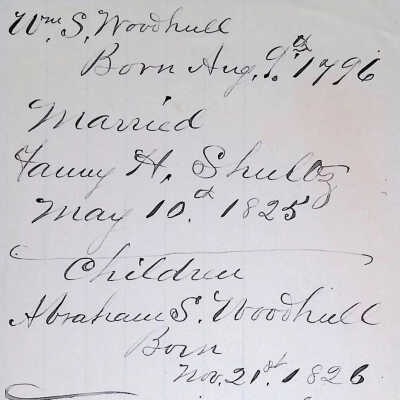 Wm. S. Woodhull
Born Aug. 9.th 1796
Married
Fanny H. Shultz
May 10.th 1825
Children
Abraham S. Woodhull
Born
Nov. 21st. 1826